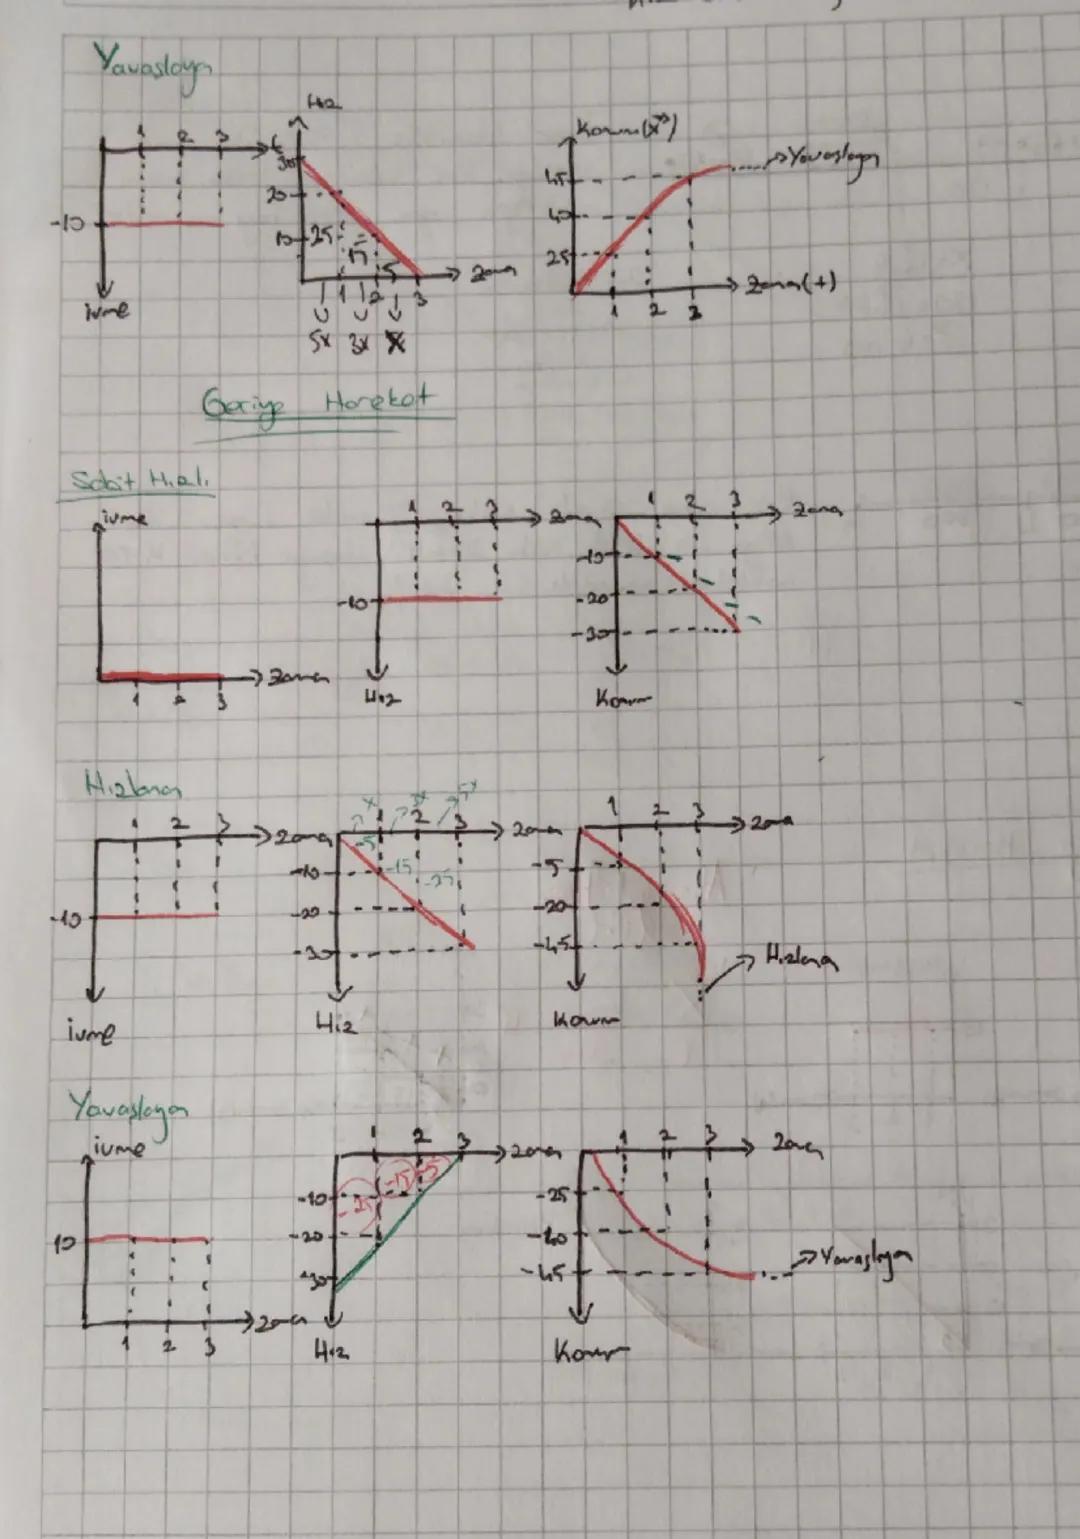 Yavaşlayan
Hız
1 2 3 t
30
20
10
-10
25 15 5
1 2 3 Zaman
ivme
5x 3x x
Konum(x)
Yavaşlayan
45
40
25
1 2 3 Zaman(t)
Geriye Hareket
Sabit Hızlı
ivme
1 2 3 Zaman
1 2 3 Zaman
-10
Hız
1 2 3 Zaman
-10
-20
-30
Konum
Hızlanan
1 2 3 Zaman
-10
ivme
x 3x 5x
1 2 3 Zaman
-5 -15 -25
-10
-20
-30
Hız
1 2 3 Zaman
-5
-20
-45
Hızlanan
Konum
Yavaşlayan
ivme
10
1 2 3 Zaman
1 2 3 Zaman
-25 -15 -5
-10
-20
-30
Hız
1 2 3 Zaman
-25
-40
-45
Yavaşlayan
Konum